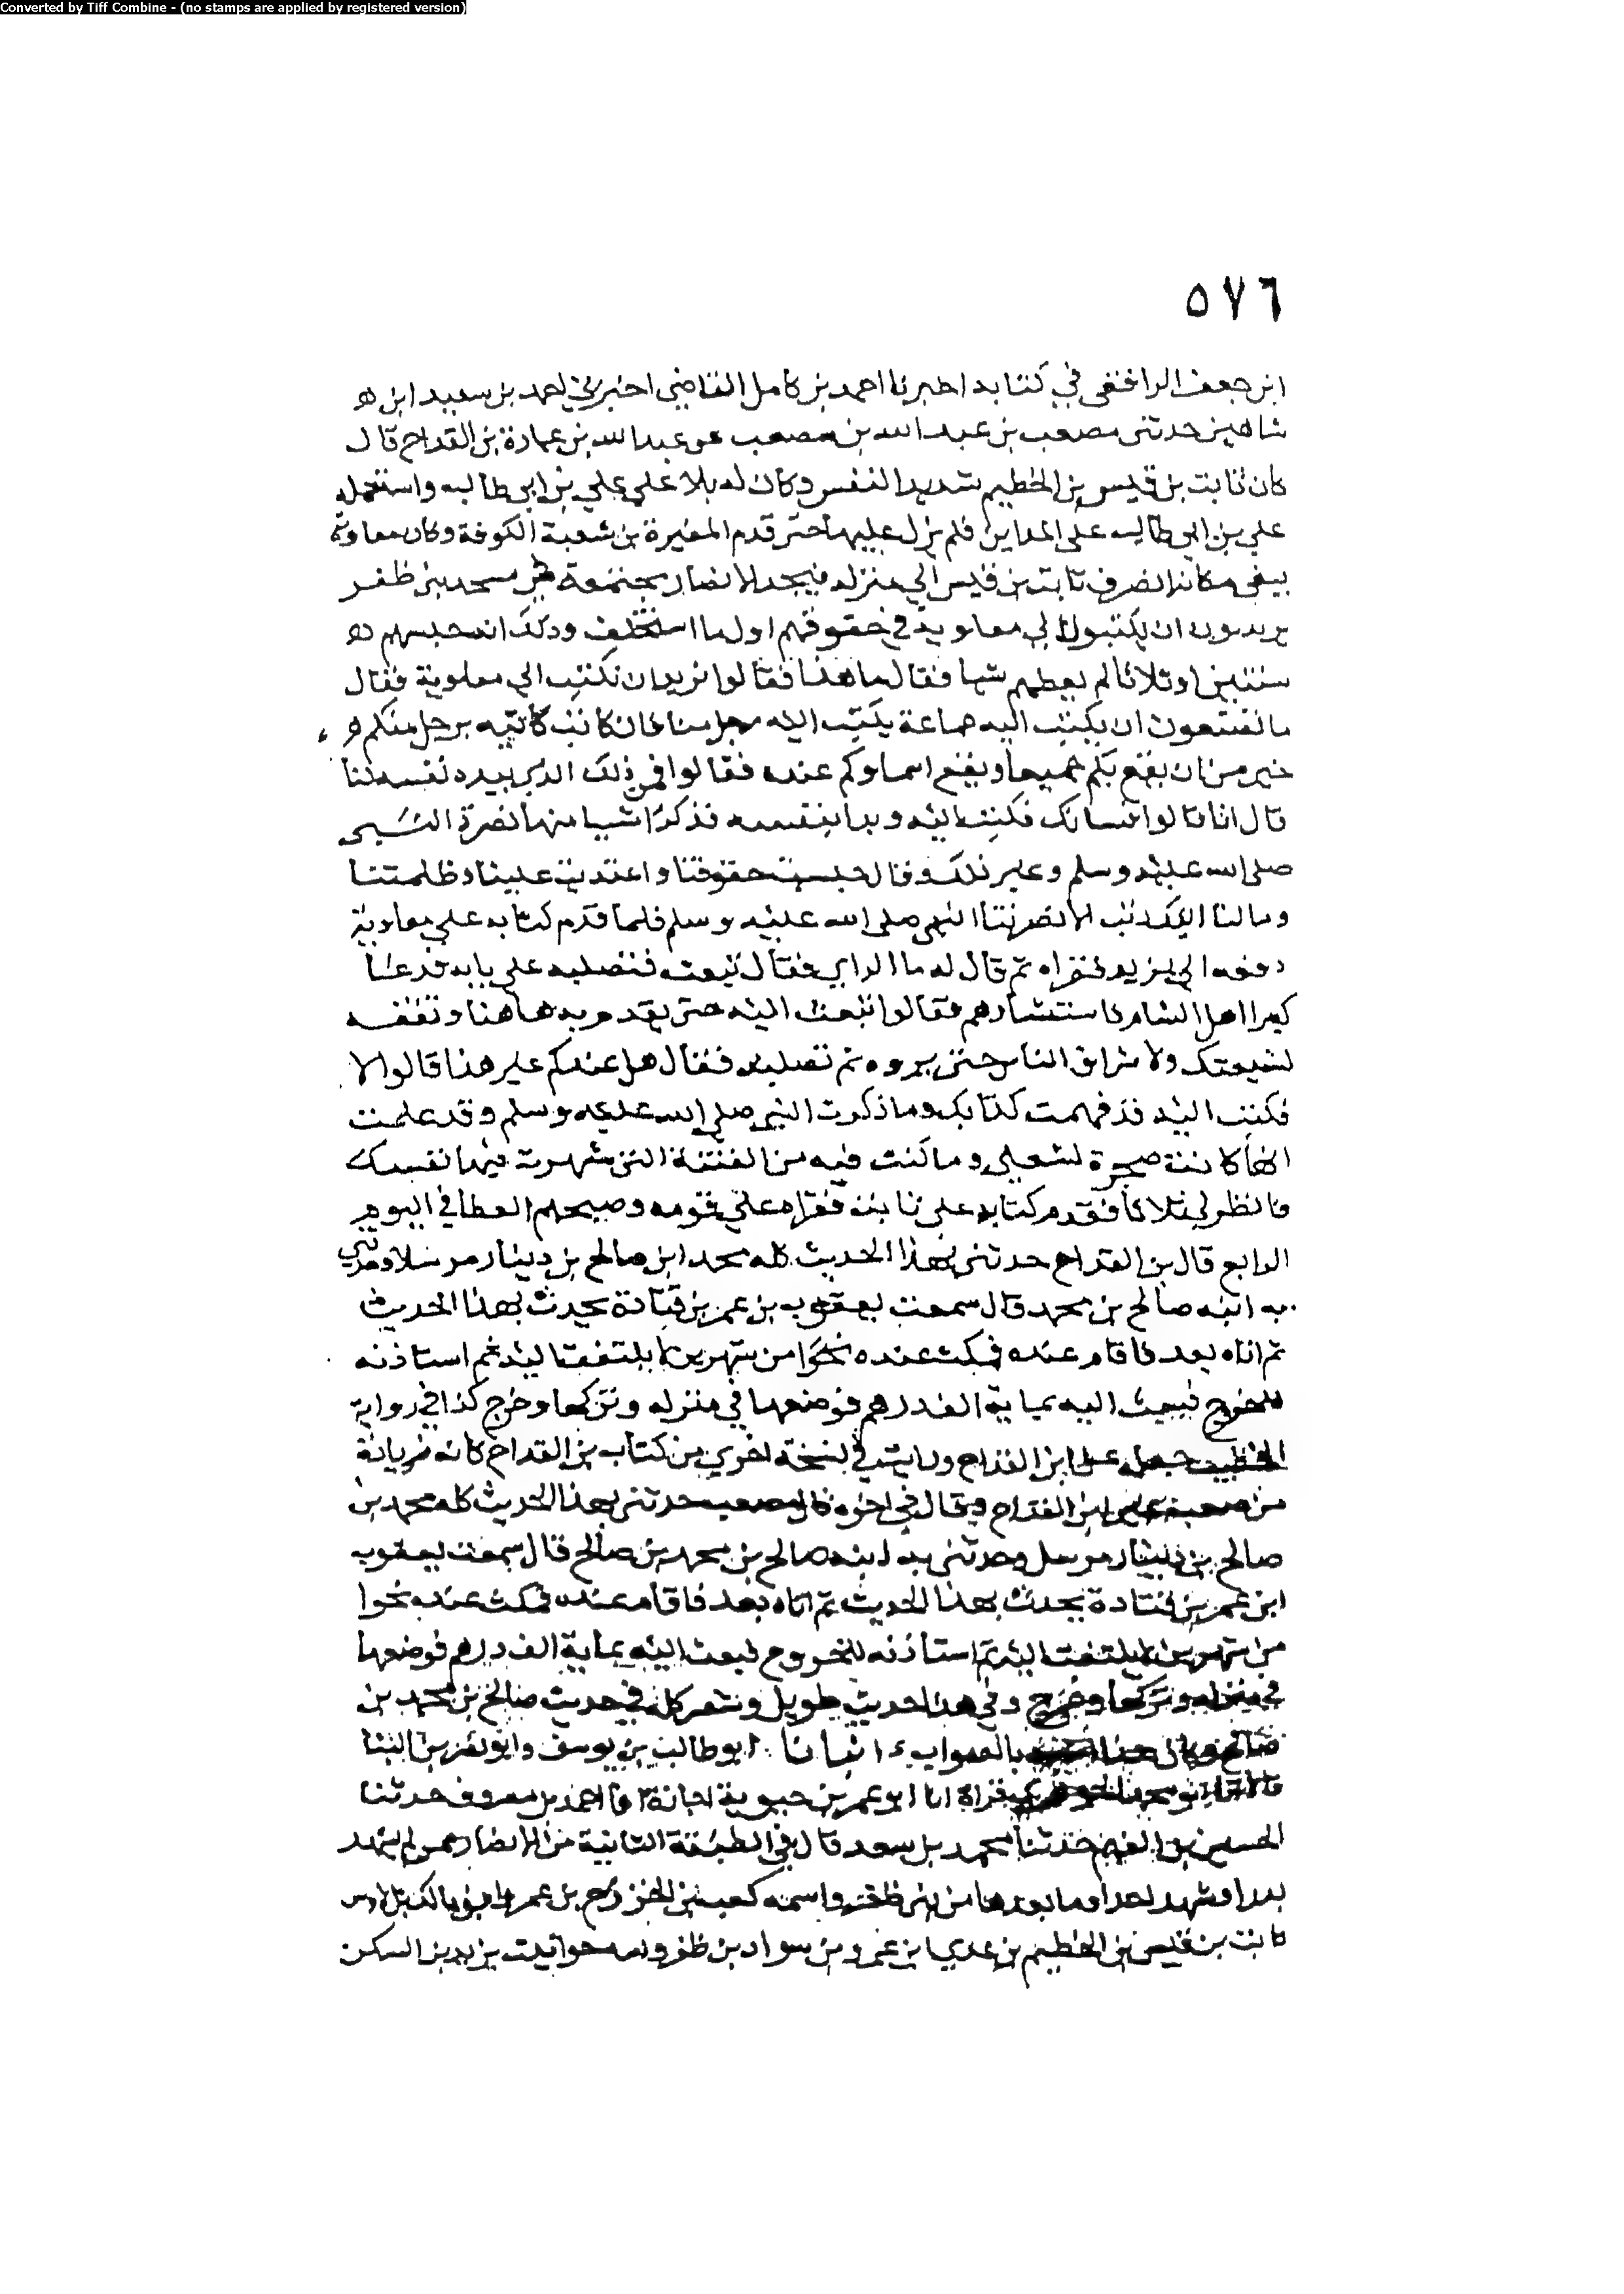 Converted by Tiff Combine - (no stamps are applied by registered version)
٥٧٦
ابن جعفر الرافقي في كتابه اخبرنا احمد بن كامل القاضي اخبرني احمد بن سعيد ابن
شاهين حدثني مصعب بن عبد الله بن مصعب عن عبد الله بن عمارة بن القداح قال
كان ثابت بن قيس بن الخطيم شديد النفس وكان له بلا علي علي بن ابي طالب واستعمله
علي بن ابي طالب على المداين فلم يزل عليها حتى قدم المغيرة بن شعبة الكوفة وكان معاوية
يتقي مكانه انصرف ثابت بن قيس الي منزله فيجد الانصار مجتمعة في مسجد بني ظفر
يريدون ان يكتبوا الي معاوية في حقوقهم اول ما استخلف وذلك انه حبسهم
سنتين او ثلاثا لم يعطهم شيا فقال ما هذا فقالوا نريد ان نكتب الي معاوية فقال
ما تصنعون ان يكتب اليه جماعة يكتب اليه رجل منا فان كانت كاينه برجل منكم
خير من ان يقع بكم جميعا ويقع اسماوكم عنده فقالوا فمن ذلك الذي يبيد نفسه لنا
قال انا قالوا فشانك فكتب اليه وبدا بنفسه فذكر اشيا منها نصرة النبي
صلى الله عليه وسلم وغير ذلك وقال حبست حقوقنا واعتديت علينا وظلمتنا
وما لنا اليك ذنب الا نصرتنا النبي صلى الله عليه وسلم فلما قدم كتابه علي معاوية
دفعه الي يزيد فقراه ثم قال له ما الراي فقال تبعث فتصلبه علي بابه فدعا
كبرا اهل الشام فاستشارهم فقالوا تبعث اليه حتى يقدم به هاهنا وتقفه
لشيعتك ولاشراف الناس حتى يروه ثم تصلبه فقال هل عندكم غير هذا قالوا لا
فكتب اليه قد فهمت كتابك وما ذكرت النبي صلى الله عليه وسلم وقد علمت
انها كانت ضجرة لشغلي وما كنت فيه من الفتنة التي شهرت فيها نفسك
فانظرني ثلاثا فقدم كتابه على ثابت فقراه علي قومه وصبحهم العطا في اليوم
الرابع قال بن القداح حدثني بهذا الحديث كله محمد ابن صالح بن دينار مرسلا وحدثني
به ابنه صالح بن محمد قال سمعت يعقوب بن عمر بن قتادة يحدث بهذا الحديث
ثم اتاه بعد فاقام عنده فمكث عنده نحوا من شهرين لا يلتفت اليه ثم استاذنه
للخروج فبعث اليه بماية الف درهم فوضعها في منزله وتركها وخرج كذا في رواية
الخطيب جعله علي ابن القداح ورايته في نسخة اخري من كتاب بن القداح كانه زيادة
من مصعب علي ابن القداح ويقال في اخره قال مصعب حدثني بهذا الحديث كله محمد بن
صالح بن دينار مرسل وحدثني به ابنه صالح بن محمد بن صالح قال سمعت يعقوب
ابن عمر بن قتادة يحدث بهذا الحديث ثم اتاه بعد فاقام عنده فمكث عنده نحوا
من شهرين لا يلتفت اليه ثم استاذنه للخروج فبعث اليه بماية الف درهم فوضعها
في منزله وتركها وخرج وفي هذا حديث طويل وشعر كله في حديث صالح بن محمد بن
صالح بالصواب انبانا ابو طالب بن يوسف وابو نصر بن البنا
ابو محمد الجوهري قراة انا ابو عمر بن حيوية اجازة انا احمد بن معروف حدثنا
الحسين بن الفهم حدثنا محمد بن سعد قال في الطبقة الثانية من الانصار ممن لم يشهد
بدرا وشهد احدا وما بعدها من بني ظفر واسمه كعب بن الخزرج بن عمرو بن مالك بن الاوس
ثابت بن قيس بن الخطيم بن عدي بن عمرو بن سواد بن ظفر وامه حوا بنت يزيد بن السكن